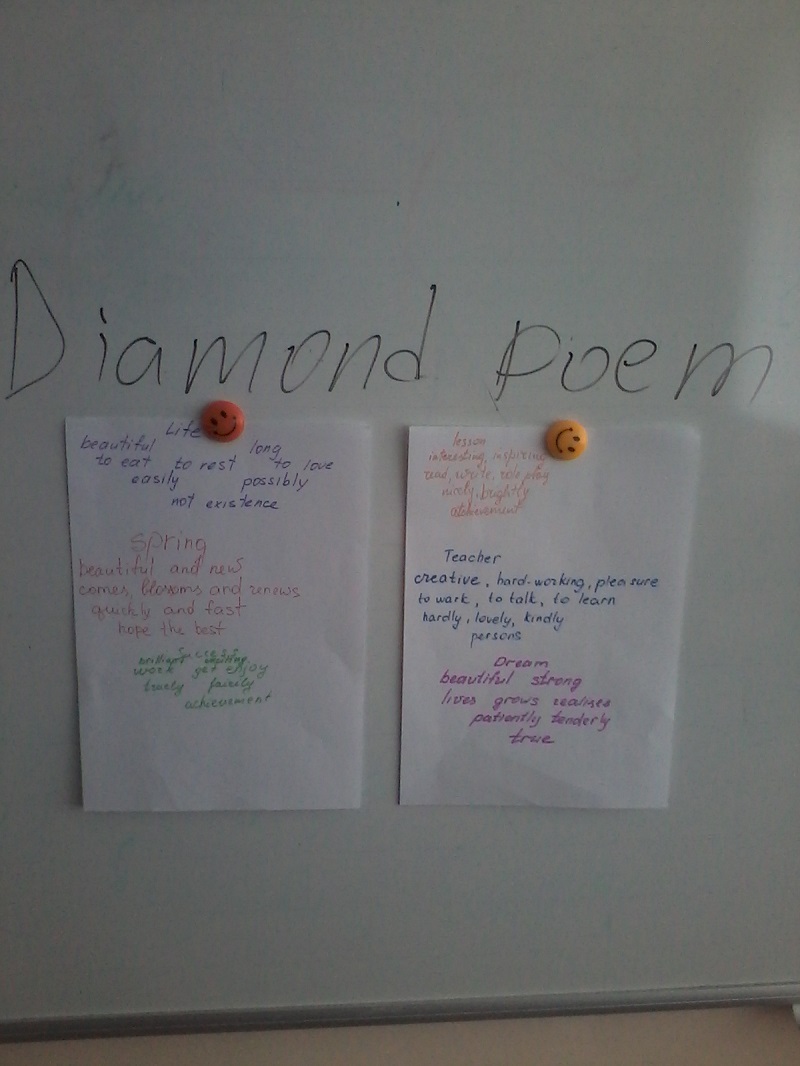 Diamond Poem
Life
beautiful long
to eat to rest to love
easily possibly
not existence
Spring
beautiful and new
comes, blossoms and renews
quickly and fast
hope the best
Success
brilliant inspiring
work get enjoy
truely fairily
achievement
lesson
interesting, inspiring
read, write, role play
nicely, brightly
achievement
Teacher
creative, hard-working, pleasure
to work, to talk, to learn
hardly, lovely, kindly
persons
Dream
beautiful strong
lives grows realises
patiently tenderly
true